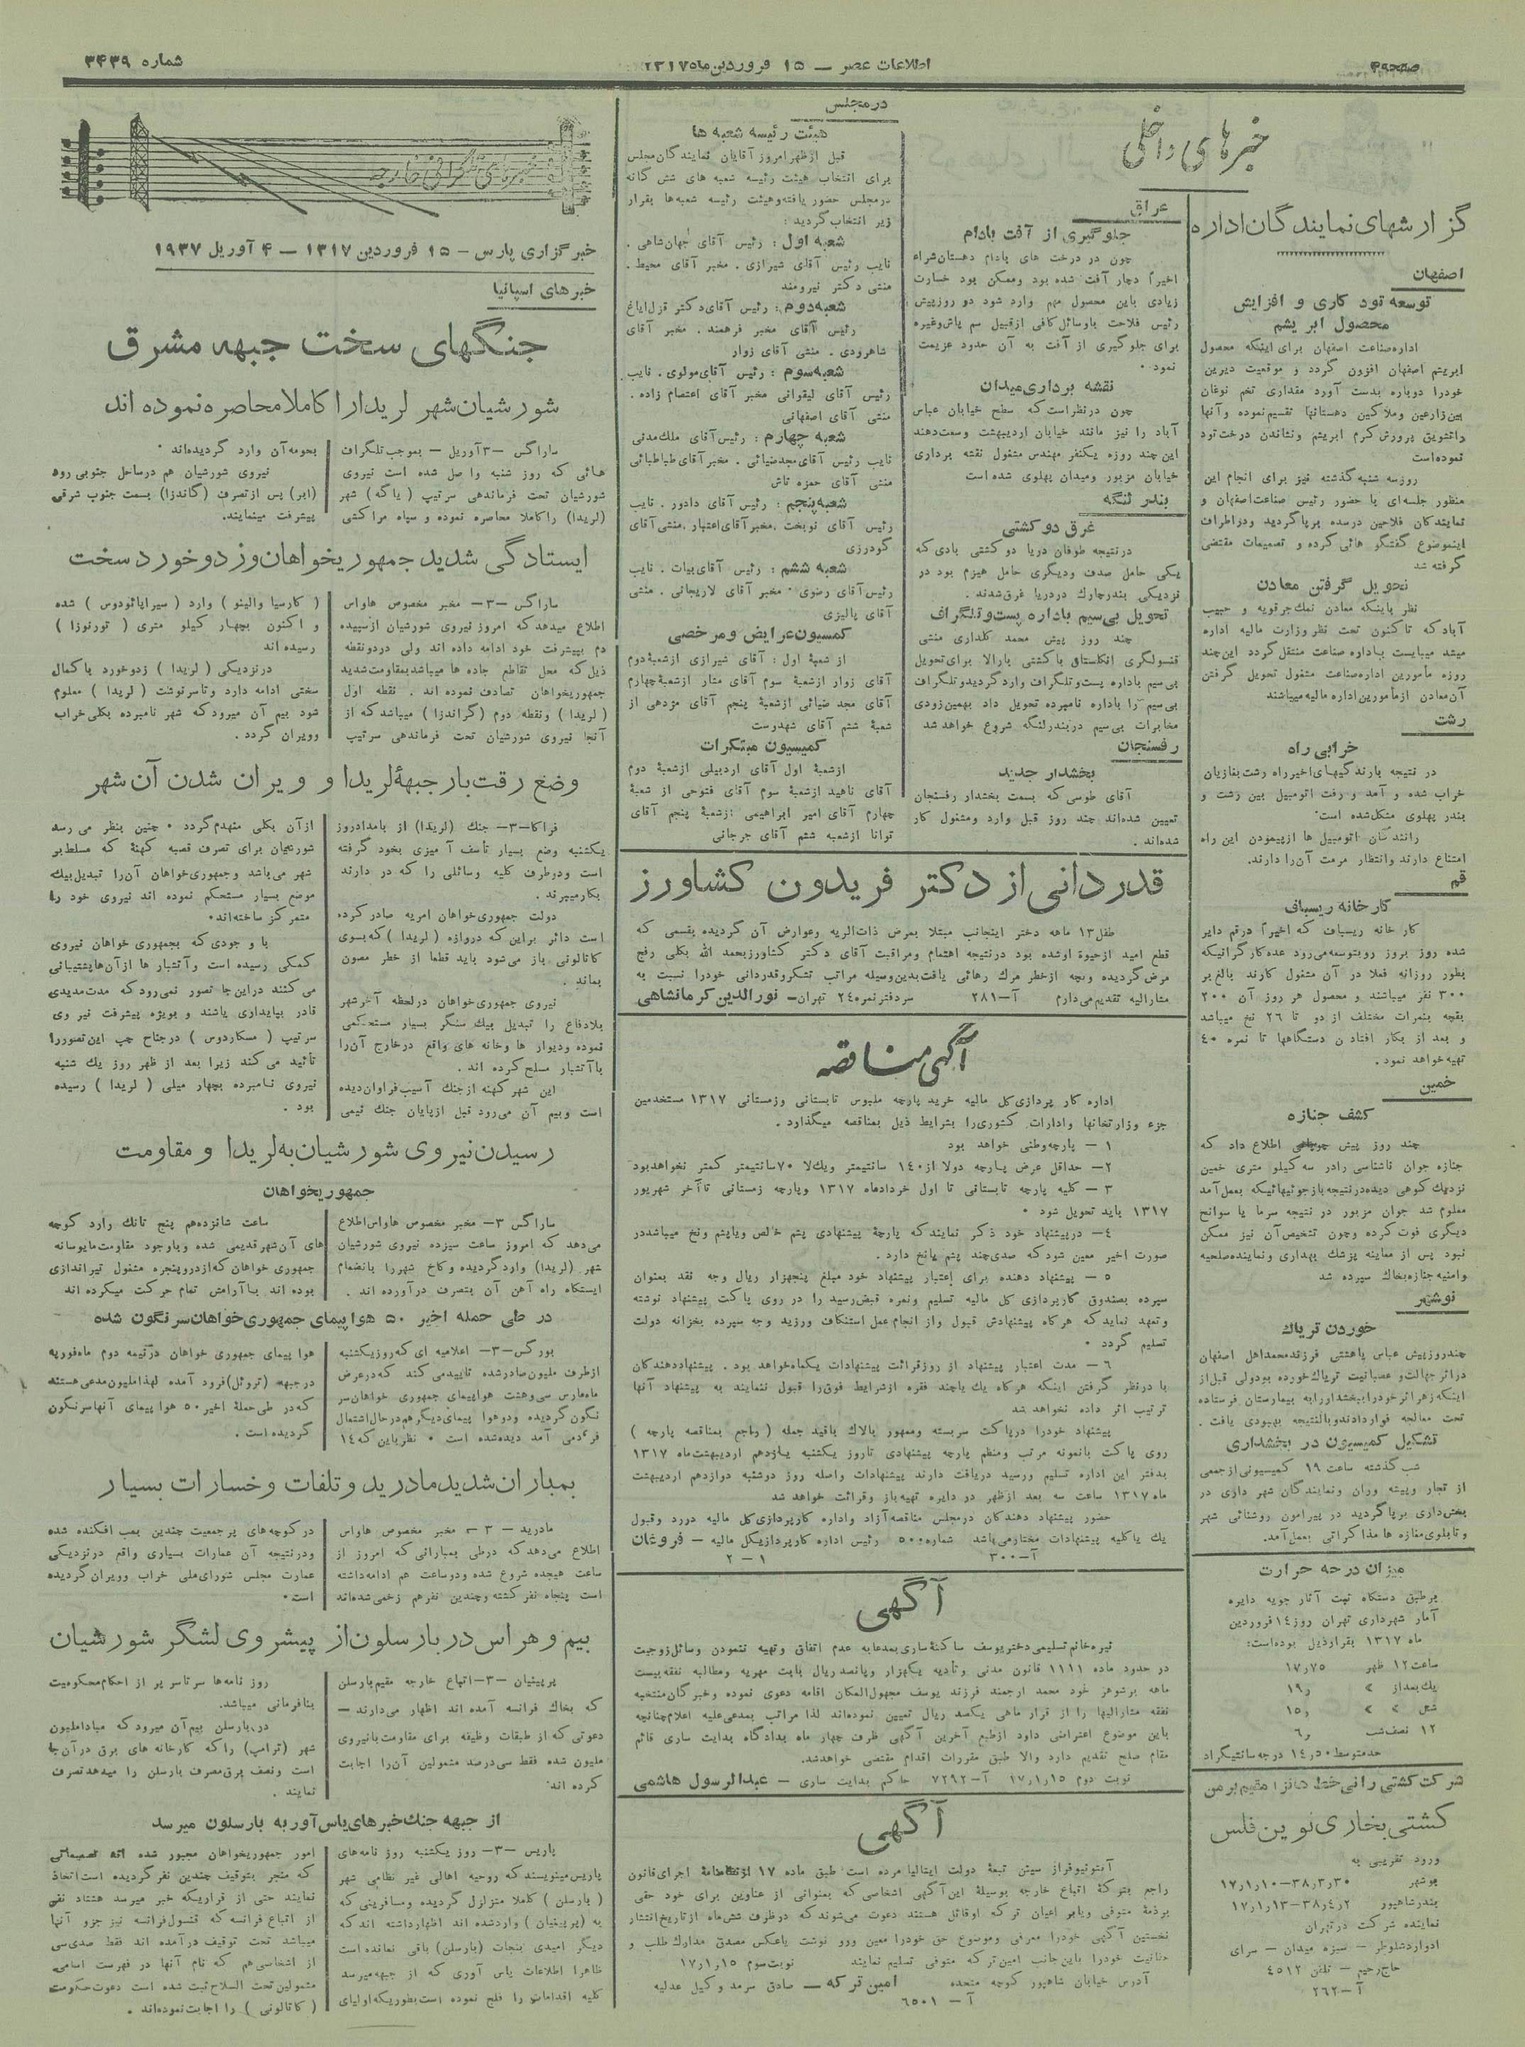 صفحه۴
اطلاعات عصر — ۱۵ فروردین‌ماه ۱۳۱۷
شماره ۳۴۳۹
خبرهای داخلی
گزارشهای نمایندگان اداره
اصفهان
توسعه تود کاری و افزایش
محصول ابریشم
اداره صناعت اصفهان برای اینکه محصول
ابریشم اصفهان افزون گردد و موقعیت دیرین
خودرا دوباره بدست آورد مقداری تخم نوغان
بین زارعین وملاکین دهستانها تقسیم نموده وآنها
راتشویق پرورش کرم ابریشم ونشاندن درخت تود
نموده است
روزسه شنبه گذشته نیز برای انجام این
منظور جلسه‌ای با حضور رئیس صناعت اصفهان و
نمایندگان فلاحین درسده برپا گردید ودراطراف
اینموضوع گفتگو هائی کرده و تصمیمات مقتضی
گرفته شد
تحویل گرفتن معادن
نظر باینکه معادن نمك جرقویه و حبیب
آباد که تاکنون تحت نظر وزارت مالیه اداره
میشد میبایست باداره صناعت منتقل گردد این چند
روزه مأمورین اداره صناعت مشغول تحویل گرفتن
آن معادن ازمأمورین اداره مالیه میباشند
رشت
خرابی راه
در نتیجه بارندگیهای اخیر راه رشت بغازیان
خراب شده و آمد و رفت اتومبیل بین رشت و
بندر پهلوی مشکل شده است
رانندگان اتومبیل ها ازپیمودن این راه
امتناع دارند وانتظار مرمت آن را دارند.
قم
کارخانه ریسباف
کار خانه ریسباف که اخیراً درقم دایر
شده روز بروز روبتوسعه میرود عده کارگرانیکه
بطور روزانه فعلا در آن مشغول کارند بالغ بر
۳۰۰ نفر میباشند و محصول هر روز آن ۲۰۰
بقچه بنمرات مختلف از دو تا ۲۶ نخ میباشد
و بعد از بکار افتادن دستگاهها تا نمره ۴۰
تهیه خواهد نمود.
خمین
کشف جنازه
چند روز پیش چوپانی اطلاع داد که
جنازه جوان ناشناسی رادر سه کیلو متری خمین
نزدیك کوهی دیده درنتیجه بازجوئیهائیکه بعمل آمد
معلوم شد جوان مزبور در نتیجه سرما یا سوانح
دیگری فوت کرده وچون تشخیص آن نیز ممکن
نبود پس از معاینه پزشك بهداری ونماینده صلحیه
وامنیه جنازه بخاك سپرده شد
نوشهر
خوردن تریاك
چندروزپیش عباس پاهشتی فرزندمحمداهل اصفهان
دراثرجهالت وعصبانیت تریاك خورده بودولی قبل از
اینکه زهر اثر خودرا ببخشد اورا به بیمارستان فرستاده
تحت معالجه قرار دادند وبالنتیجه بهبودی یافت.
تشکیل کمیسیون در بخشداری
شب گذشته ساعت ۱۹ کمیسیونی ازجمعی
از تجار وپیشه وران ونمایندگان شهر داری در
بخش داری برپا گردید در پیرامون روشنائی شهر
وتابلوی مغازه ها مذاکراتی بعمل آمد.
میزان درجه حرارت
برطبق دستگاه ثبت آثار جویه دایره
آمار شهرداری تهران روز ۱۴ فروردین
ماه ۱۳۱۷ بقرارذیل بوده است:
ساعت ۱۲ ظهر ۱۷٫۷۵
یك بعداز » ۱۹٫
شش » » ۱۵٫
۱۲ نصف شب ۶٫
حدمتوسط ۱۴٫۵۰ درجه سانتیگراد
شرکت کشتی رانی خط هانزا مقیم برمن
کشتی بخاری نوین فلس
ورود تقریبی به
بوشهر ۳۸٫۳٫۳۰—۱۷٫۱٫۱۰
بندرشاهپور ۳۸٫۴٫۲—۱۷٫۱٫۱۳
نماینده شرکت درتهران
ادواردشلوطر — سبزه میدان — سرای
حاج رحیم — تلفن ۴۵۱۲
آ—۲۶۲
عراق
جلوگیری از آفت بادام
چون در درخت های بادام دهستان شراء
اخیراً دچار آفت شده بود وممکن بود خسارت
زیادی باین محصول مهم وارد شود دو روزپیش
رئیس فلاحت باوسائل کافی ازقبیل سم پاش وغیره
برای جلوگیری از آفت به آن حدود عزیمت
نمود.
نقشه برداری میدان
چون درنظراست که سطح خیابان عباس
آباد را نیز مانند خیابان اردیبهشت وسعت دهند
این چند روزه یکنفر مهندس مشغول نقشه برداری
خیابان مزبور ومیدان پهلوی شده است
بندر لنگه
غرق دوکشتی
درنتیجه طوفان دریا دو کشتی بادی که
یکی حامل صدف ودیگری حامل هیزم بود در
نزدیکی بندرچارك دردریا غرق شدند.
تحویل بی‌سیم باداره پست و تلگراف
چند روز پیش محمد کلداری منشی
قنسولگری انگلستان باکشتی بارالا برای تحویل
بی‌سیم باداره پست وتلگراف واردگردید وتلگراف
بی‌سیم را باداره نامبرده تحویل داد بهمین زودی
مخابرات بی‌سیم دربندرلنگه شروع خواهد شد
رفسنجان
بخشدار جدید
آقای طوسی که بسمت بخشدار رفسنجان
تعیین شده‌اند چند روز قبل وارد ومشغول کار
شده‌اند.
درمجلس
هیئت رئیسه شعبه ها
قبل ازظهر امروز آقایان نمایندگان مجلس
برای انتخاب هیئت رئیسه شعبه های شش گانه
درمجلس حضور یافته وهیئت رئیسه شعبه‌ها بقرار
زیر انتخاب گردید:
شعبه اول: رئیس آقای جهان‌شاهی.
نایب رئیس آقای شیرازی. مخبر آقای محیط.
منشی دکتر نیرومند
شعبه دوم: رئیس آقای دکتر قزل ایاغ
رئیس آقای مخبر فرهمند. مخبر آقای
شاهرودی. منشی آقای زوار
شعبه سوم: رئیس آقای مولوی. نایب
رئیس آقای لیقوانی مخبر آقای اعتصام زاده.
منشی آقای اصفهانی
شعبه چهارم: رئیس آقای ملك‌مدنی
نایب رئیس آقای مجدضیائی. مخبر آقای طباطبائی
منشی آقای حمزه تاش
شعبه پنجم: رئیس آقای دادور. نایب
رئیس آقای نوبخت. مخبر آقای اعتبار. منشی آقای
گودرزی
شعبه ششم: رئیس آقای بیات. نایب
رئیس آقای رضوی. مخبر آقای لاریجانی. منشی
آقای پالیزی
کمسیون عرایض ومرخصی
از شعبهٔ اول: آقای شیرازی ازشعبهٔ دوم
آقای زوار ازشعبهٔ سوم آقای منار ازشعبهٔ چهارم
آقای مجد ضیائی از شعبهٔ پنجم آقای مژدهی از
شعبهٔ ششم آقای شهدوست
کمیسیون مبتکرات
ازشعبهٔ اول آقای اردبیلی ازشعبهٔ دوم
آقای ناهید ازشعبهٔ سوم آقای فتوحی از شعبهٔ
چهارم آقای امیر ابراهیمی ازشعبهٔ پنجم آقای
توانا ازشعبه ششم آقای جرجانی
قدردانی از دکتر فریدون کشاورز
طفل ۱۳ ماهه دختر اینجانب مبتلا بمرض ذات‌الریه وعوارض آن گردیده بقسمی که
قطع امید ازحیوة اوشده بود درنتیجه اهتمام ومراقبت آقای دکتر کشاورزبحمد الله بکلی رفع
مرض گردیده وبچه ازخطر مرك رهائی یافت بدین‌وسیله مراتب تشکروقدردانی خودرا نسبت به
مشارالیه تقدیم می‌دارم آ—۲۸۱ سردفترنمره ۲۴۰ تهران— نورالدین کرمانشاهی
آگهی مناقصه
اداره کار پردازی کل مالیه خرید پارچه ملبوس تابستانی وزمستانی ۱۳۱۷ مستخدمین
جزء وزارتخانها وادارات کشوری‌را بشرایط ذیل بمناقصه میگذارد.
۱ — پارچه وطنی خواهد بود
۲— حداقل عرض پارچه دولا از ۱۴۰ سانتیمتر ویك‌لا ۷۰ سانتیمتر کمتر نخواهدبود
۳— کلیه پارچه تابستانی تا اول خردادماه ۱۳۱۷ وپارچه زمستانی تاآخر شهریور
۱۳۱۷ باید تحویل شود.
۴— درپیشنهاد خود ذکر نمایند که پارچهٔ پیشنهادی پشم خالص ویاپشم ونخ میباشددر
صورت اخیر معین شود که صدی‌چند پشم یانخ دارد.
۵ — پیشنهاد دهنده برای اعتبار پیشنهاد خود مبلغ پنجهزار ریال وجه نقد بعنوان
سپرده بصندوق کارپردازی کل مالیه تسلیم ونمره قبض‌رسید را در روی پاکت پیشنهاد نوشته
وتعهد نماید که هرگاه پیشنهادش قبول واز انجام عمل استنکاف ورزید وجه سپرده بخزانه دولت
تسلیم گردد.
۶ — مدت اعتبار پیشنهاد از روزقرائت پیشنهادات یکماه خواهد بود. پیشنهاددهندکان
با درنظر گرفتن اینکه هرگاه یك یاچند فقره ازشرایط فوق‌را قبول ننمایند به پیشنهاد آنها
ترتیب اثر داده نخواهد شد
پیشنهاد خودرا درپاکت سربسته وممهور بالاك باقید جمله (راجع بمناقصه پارچه)
روی پاکت بانمونه مرتب ومنظم پارچه پیشنهادی تاروز یکشنبه یازدهم اردیبهشت ماه ۱۳۱۷
بدفتر این اداره تسلیم ورسید دریافت دارند پیشنهادات واصله روز دوشنبه دوازدهم اردیبهشت
ماه ۱۳۱۷ ساعت سه بعد ازظهر در دایره تهیه باز وقرائت خواهد شد
حضور پیشنهاد دهندگان درمجلس مناقصه آزاد واداره کارپردازی کل مالیه دررد وقبول
یك یاکلیه پیشنهادات مختارمی‌باشد شماره ۵۰۰ رئیس اداره کارپردازیکل مالیه — فروغان
آ—۳۰۰ ۱—۲
آگهی
نیره خانم تسلیمی دختریوسف ساکنهٔ ساری بمدعابه عدم اتفاق وتهیه ننمودن وسائل زوجیت
در حدود ماده ۱۱۱۱ قانون مدنی وتأدیه یکهزار وپانصد ریال بابت مهریه ومطالبه نفقه بیست
ماهه برشوهر خود محمد ارجمند فرزند یوسف مجهول‌المکان اقامه دعوی نموده وخبرگان منتخبه
نفقه مشارالیها را از قرار ماهی یکصد ریال تعیین نموده‌اند لذا مراتب بمدعی‌علیه اعلام چنانچه
باین موضوع اعتراضی دارد ازطبع آخرین آگهی ظرف چهار ماه بدادگاه بدایت ساری قائم
مقام صلح تقدیم دارد والا طبق مقررات اقدام مقتضی خواهدشد.
نوبت دوم ۱۷٫۱٫۱۵ آ—۷۲۹۲ حاکم بدایت ساری — عبدالرسول هاشمی
آگهی
آنتونیوفراز سیتن تبعهٔ دولت ایتالیا مرده است طبق ماده ۱۷ ازنظامنامهٔ اجرای قانون
راجع بترکهٔ اتباع خارجه بوسیلهٔ این‌آگهی اشخاصی که بعنوانی از عناوین برای خود حقی
برذمهٔ متوفی ویابر اعیان ترکه اوقائل هستند دعوت می‌شوند که درظرف شش‌ماه ازتاریخ انتشار
نخستین آگهی خودرا معرفی وموضوع حق خودرا معین ورو نوشت یاعکس مصدق مدارك طلب و
حقانیت خودرا باین‌جانب امین‌ترکه متوفی تسلیم نمایند نوبت‌سوم ۱۷٫۱٫۱۵
آدرس خیابان شاهپور کوچه متحده امین ترکه — صادق سرمد وکیل عدلیه
آ — ۶۵۰۱
خبرهای تلگرافی خارجه
خبرگزاری پارس – ۱۵ فروردین ۱۳۱۷ — ۴ آوریل ۱۹۳۷
خبرهای اسپانیا
جنگهای سخت جبهه مشرق
شورشیان شهر لریدارا کاملا محاصره نموده اند
ساراگس —۳آوریل— بموجب تلگراف
هائی که روز شنبه واصل شده است نیروی
شورشیان تحت فرماندهی سرتیپ (یاگه) شهر
(لریدا) راکاملا محاصره نموده و سپاه مراکشی
بحومه‌آن وارد گردیده‌اند.
نیروی شورشیان هم درساحل جنوبی رود
(ابر) پس ازتصرف (گاندزا) بسمت جنوب شرقی
پیشرفت مینمایند.
ایستادگی شدید جمهوریخواهان و زد و خورد سخت
ساراگس —۳— مخبر مخصوص هاواس
اطلاع میدهد که امروز نیروی شورشیان ازسپیده
دم بپیشرفت خود ادامه داده اند ولی دردونقطه
ذیل که محل تقاطع جاده ها میباشد بمقاومت شدید
جمهوریخواهان تصادف نموده اند. نقطه اول
(لریدا) ونقطه دوم (گراندزا) میباشد که از
آنجا نیروی شورشیان تحت فرماندهی سرتیپ
(کارسیا والینو) وارد (سیراپاندودس) شده
و اکنون بچهار کیلو متری (تورتوزا)
رسیده اند
درنزدیکی (لریدا) زدوخورد باکمال
سختی ادامه دارد وتاسرنوشت (لریدا) معلوم
شود بیم آن میرود که شهر نامبرده بکلی خراب
وویران گردد.
وضع رقت بار جبههٔ لریدا و ویران شدن آن شهر
فراکا—۳— جنك (لریدا) از بامدادروز
یکشنبه وضع بسیار تأسف آمیزی بخود گرفته
است ودرطرف کلیه وسائلی را که در دارند
بکارمیبرند.
دولت جمهوری‌خواهان امریه صادر کرده
است دائر براین‌که دروازه (لریدا) که بسوی
کاتالونی باز می‌شود باید قطعا از خطر مصون
بماند.
نیروی جمهوری‌خواهان درلحظه آخرشهر
بلادفاع را تبدیل بیك سنگر بسیار مستحکمی
نموده ودیوار ها وخانه های واقع درخارج آن‌را
باآتشبار مسلح کرده اند.
این شهر کهنه ازجنك آسیب فراوان‌دیده
است وبیم آن می‌رود قبل ازپایان جنك نیمی
ازآن بکلی منهدم گردد. چنین بنظر می رسد
شورشیان برای تصرف قصبه کهنهٔ که مسلط‌بر
شهر می‌باشد وجمهوری‌خواهان آن‌را تبدیل‌بیك
موضع بسیار مستحکم نموده اند نیروی خود را
متمرکز ساخته‌اند.
با و جودی که بجمهوری خواهان نیروی
کمکی رسیده است وآتشبار ها ازآن‌ها پشتیبانی
می کنند دراین‌جا تصور نمی‌رود که مدت مدیدی
قادر بپایداری باشند و بویژه پیشرفت نیروی
سرتیپ (مسکاردوس) درجناح چپ این‌تصوررا
تأئید می‌کند زیرا بعد از ظهر روز یك شنبه
نیروی نامبرده بچهار میلی (لریدا) رسیده
بود.
رسیدن نیروی شورشیان به لریدا و مقاومت
جمهوریخواهان
ساراگس ۳— مخبر مخصوص هاواس اطلاع
می‌دهد که امروز ساعت سیزده نیروی شورشیان
شهر (لریدا) واردگردیده وکاخ شهررا بانضمام
ایستگاه راه آهن آن بتصرف درآورده اند.
ساعت شانزدهم پنج تانك وارد کوچه
های آن‌شهر قدیمی شده وباوجود مقاومت مایوسانه
جمهوری خواهان که ازدرو پنجره مشغول تیراندازی
بوده اند باآرامش تمام حرکت میکرده اند
در طی حمله اخیر ۵۰ هواپیمای جمهوری خواهان سرنگون شده
بورگس—۳— اعلامیه ای که روزیکشنبه
ازطرف ملیون صادرشده تاییدمی کند که درعرض
ماه‌مارس سی‌وهشت هواپیمای جمهوری خواهان سر
نگون گردیده ودو هوا پیمای دیگرهم درحال اشتمال
فرودمی آمد دیده‌شده است. نظرباین که ۱۴
هوا پیمای جمهوری خواهان درنیمه دوم ماه‌فوریه
درجبهه (تروئل) فرود آمده لهذا ملیون مدعی‌هستند
که در طی حملهٔ اخیر ۵۰ هوا پیمای آنها سرنگون
گردیده است.
بمباران شدید مادرید و تلفات و خسارات بسیار
مادرید — ۳ — مخبر مخصوص هاواس
اطلاع می‌دهد که درطی بمبارانی که امروز از
ساعت هیجده شروع شده ودوساعت هم ادامه‌داشته
است پنجاه نفر کشته وچندین نفرهم زخمی شده‌اند
در کوچه های پرجمعیت چندین بمب افکنده شده
ودرنتیجه آن عمارات بسیاری واقع درنزدیکی
عمارت مجلس شورای‌ملی خراب وویران گردیده
است.
بیم و هراس در بارسلون از پیشروی لشگر شورشیان
پرپینیان —۳—اتباع خارجه مقیم بارسلن
که بخاك فرانسه آمده اند اظهار می‌دارند —
دعوتی که از طبقات وظیفه برای مقاومت بانیروی
ملیون شده فقط سی‌درصد مشمولین آن‌را اجابت
کرده اند.
روز نامه‌ها سرتاسر پر از احکام محکومیت
بنافرمانی میباشد.
در بارسلن بیم آن میرود که مبادا ملیون
شهر (ترامپ) را که کارخانه های برق درآن‌جا
است ونصف برق مصرف بارسلن را میدهد تصرف
نمایند.
از جبهه جنك خبرهای یأس آور به بارسلون میرسد
پاریس —۳— روز یکشنبه روز نامه‌های
پاریس مینویسند که روحیه اهالی غیر نظامی شهر
(بارسلن) کاملا متزلزل گردیده ومسافرینی که
به (پرپینیان) واردشده اند اظهارداشته اند که
دیگر امیدی بنجات (بارسلن) باقی نمانده است
ظاهراً اطلاعات یأس آوری که از جبهه میرسد
کلیه اقدامات را فلج نموده است بطوریکه اولیای
امور جمهوریخواهان مجبور شده اند تصمیماتی
که منجر بتوقیف چندین نفر گردیده است اتخاذ
نمایند حتی از قراریکه خبر میرسد هشتاد نفر
از اتباع فرانسه که قنسول‌فرانسه نیز جزو آنها
میباشد تحت توقیف درآمده اند فقط صدی‌سی
از اشخاصی هم که نام آنها در فهرست اسامی
مشمولین تحت السلاح ثبت شده است دعوت حکومت
(کاتالونی) را اجابت نموده‌اند.